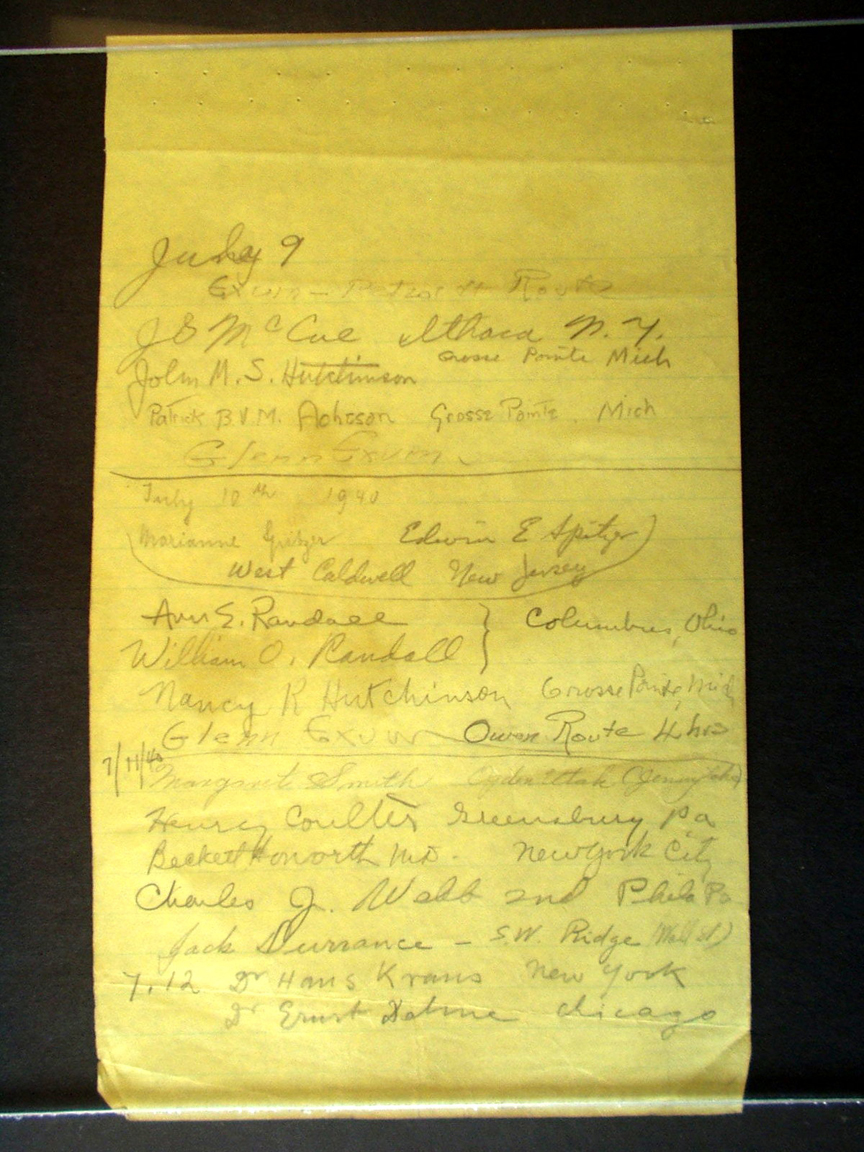 July 9
Exum - Petzoldt Route
J E McCue Ithaca N.Y.
Grosse Pointe Mich
John M. S. Hutchinson
Patrick B.V.M. Acheson Grosse Pointe, Mich
Glenn Exum
July 10th 1940
Marianne Spitzer Edwin E Spitzer
West Caldwell New Jersey
Ann E. Randall } Columbus, Ohio
William O. Randall
Nancy R Hutchinson Grosse Pointe, Mich
Glenn Exum Owen Route 4 hrs
7/11/40 Margaret Smith Ogden Utah (Jenny Lake)
Henry Coulter Greensburg Pa
Beckett Howorth M.D. New York City
Charles J. Webb 2nd Phila Pa
Jack Durrance - S.W. Ridge (Wall St)
7.12 Dr Hans Kraus New York
Dr Ernst Chicago